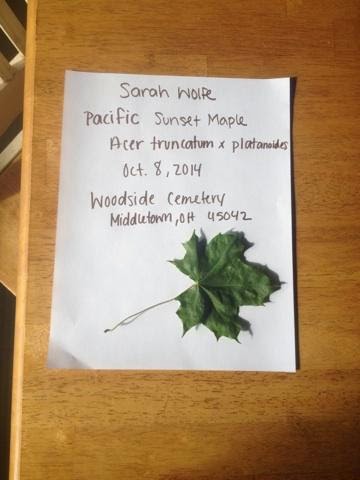 Sarah Wolfe
Pacific Sunset Maple
Acer truncatum x platanoides
Oct. 8, 2014
Woodside Cemetery
Middletown, OH 45042